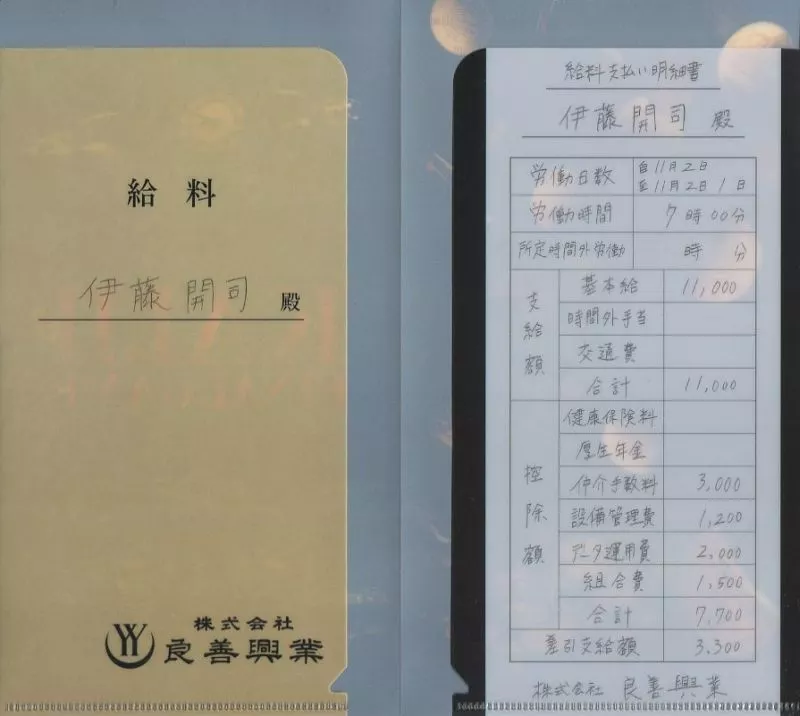 給料
伊藤開司 殿
株式会社
良善興業
給料支払い明細書
伊藤開司 殿
労働日数 自11月2日
至11月2日 1日
労働時間 7時00分
所定時間外労働 時 分
支給額
基本給 11,000
時間外手当
交通費
合計 11,000
控除額
健康保険料
厚生年金
仲介手数料 3,000
設備管理費 1,200
データ運用費 2,000
組合費 1,500
合計 7,700
差引支給額 3.300
株式会社 良善興業